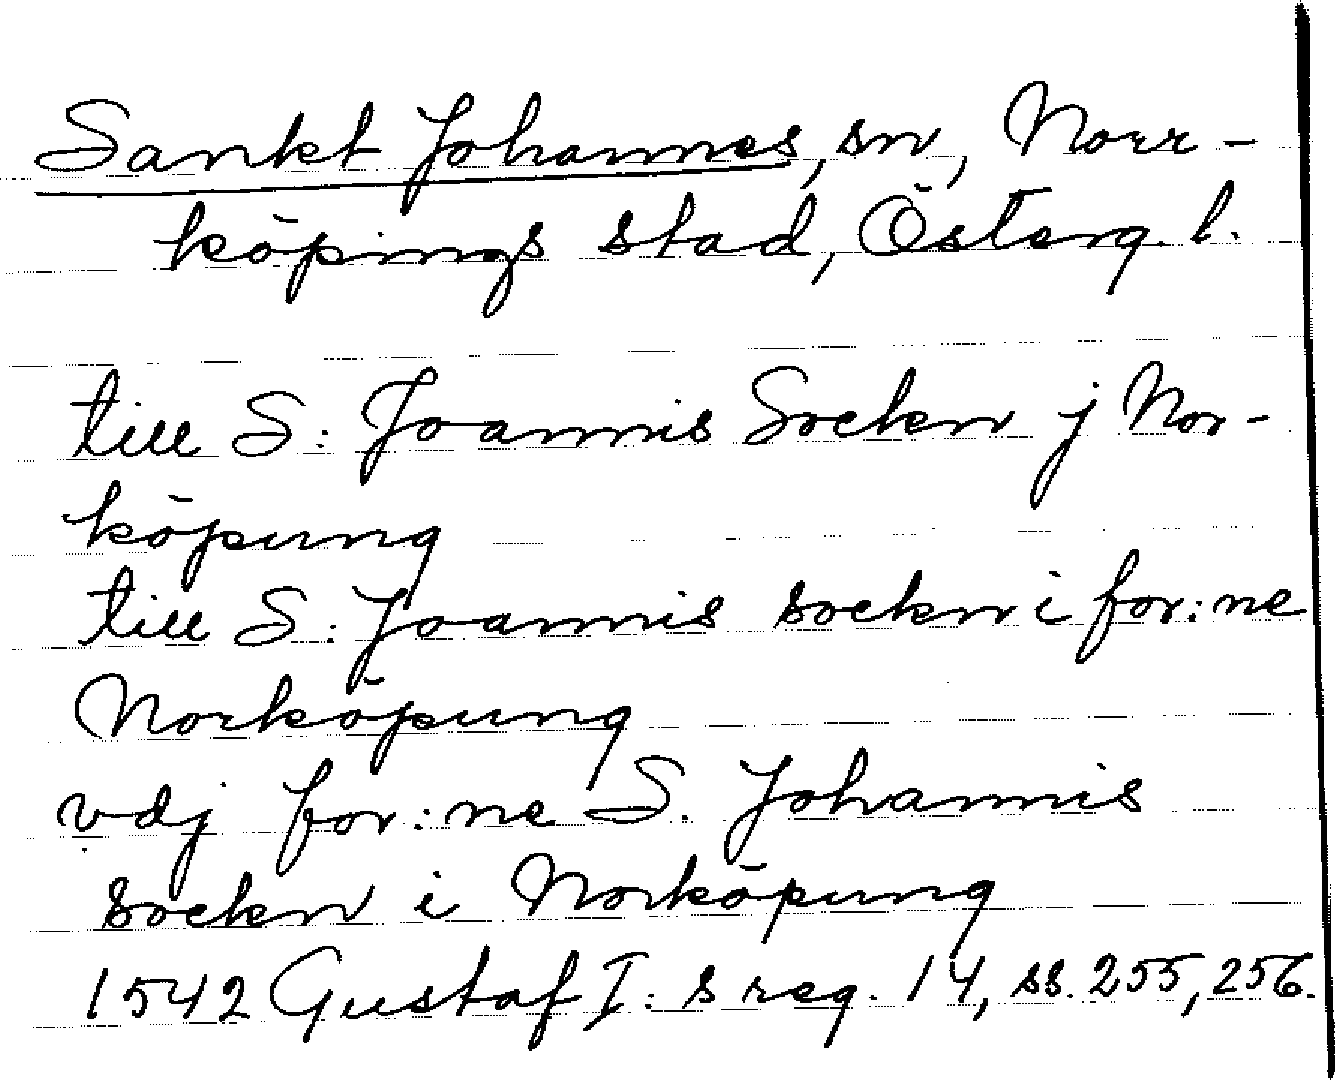 Sankt Johannes, sn, Norr-
köpings stad, Österg. l.
till S: Joannis Sockn j Nor-
köpung
till S: Joannis sockn i for:ne
Norköpung
vdj for:ne S. Johannis
sockn i Norköpung
1542 Gustaf I:s reg. 14, ss. 255, 256.